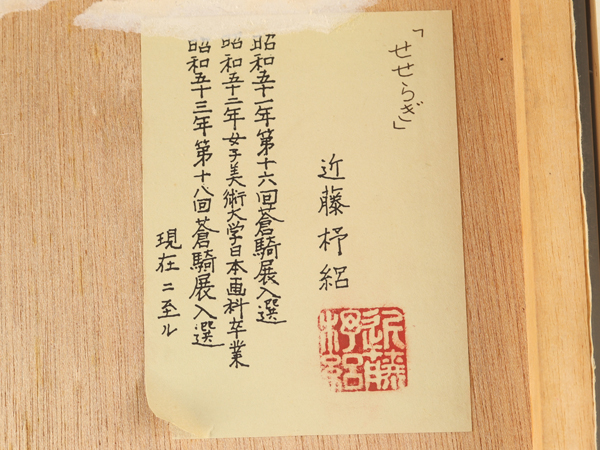 「せせらぎ」
近藤杼紹
昭和五十一年第十六回蒼騎展入選
昭和五十二年女子美術大学日本画科卒業
昭和五十三年第十八回蒼騎展入選
現在ニ至ル
近藤
杼紹